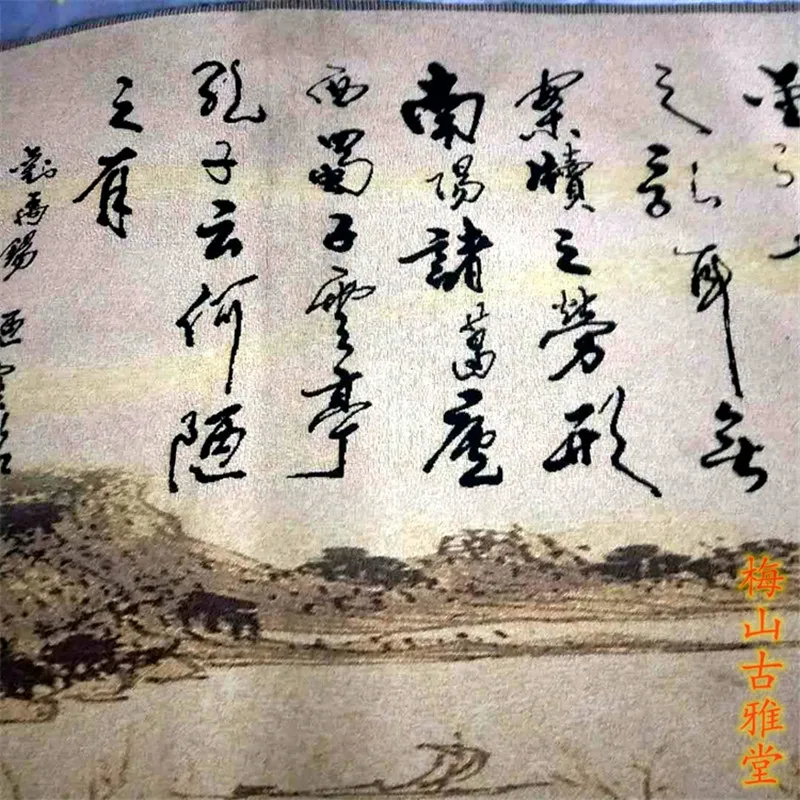 之亂耳無
案牘之勞形
南陽諸葛廬
西蜀子雲亭
孔子云何陋
之有
劉禹錫 陋室銘
梅山古雅堂